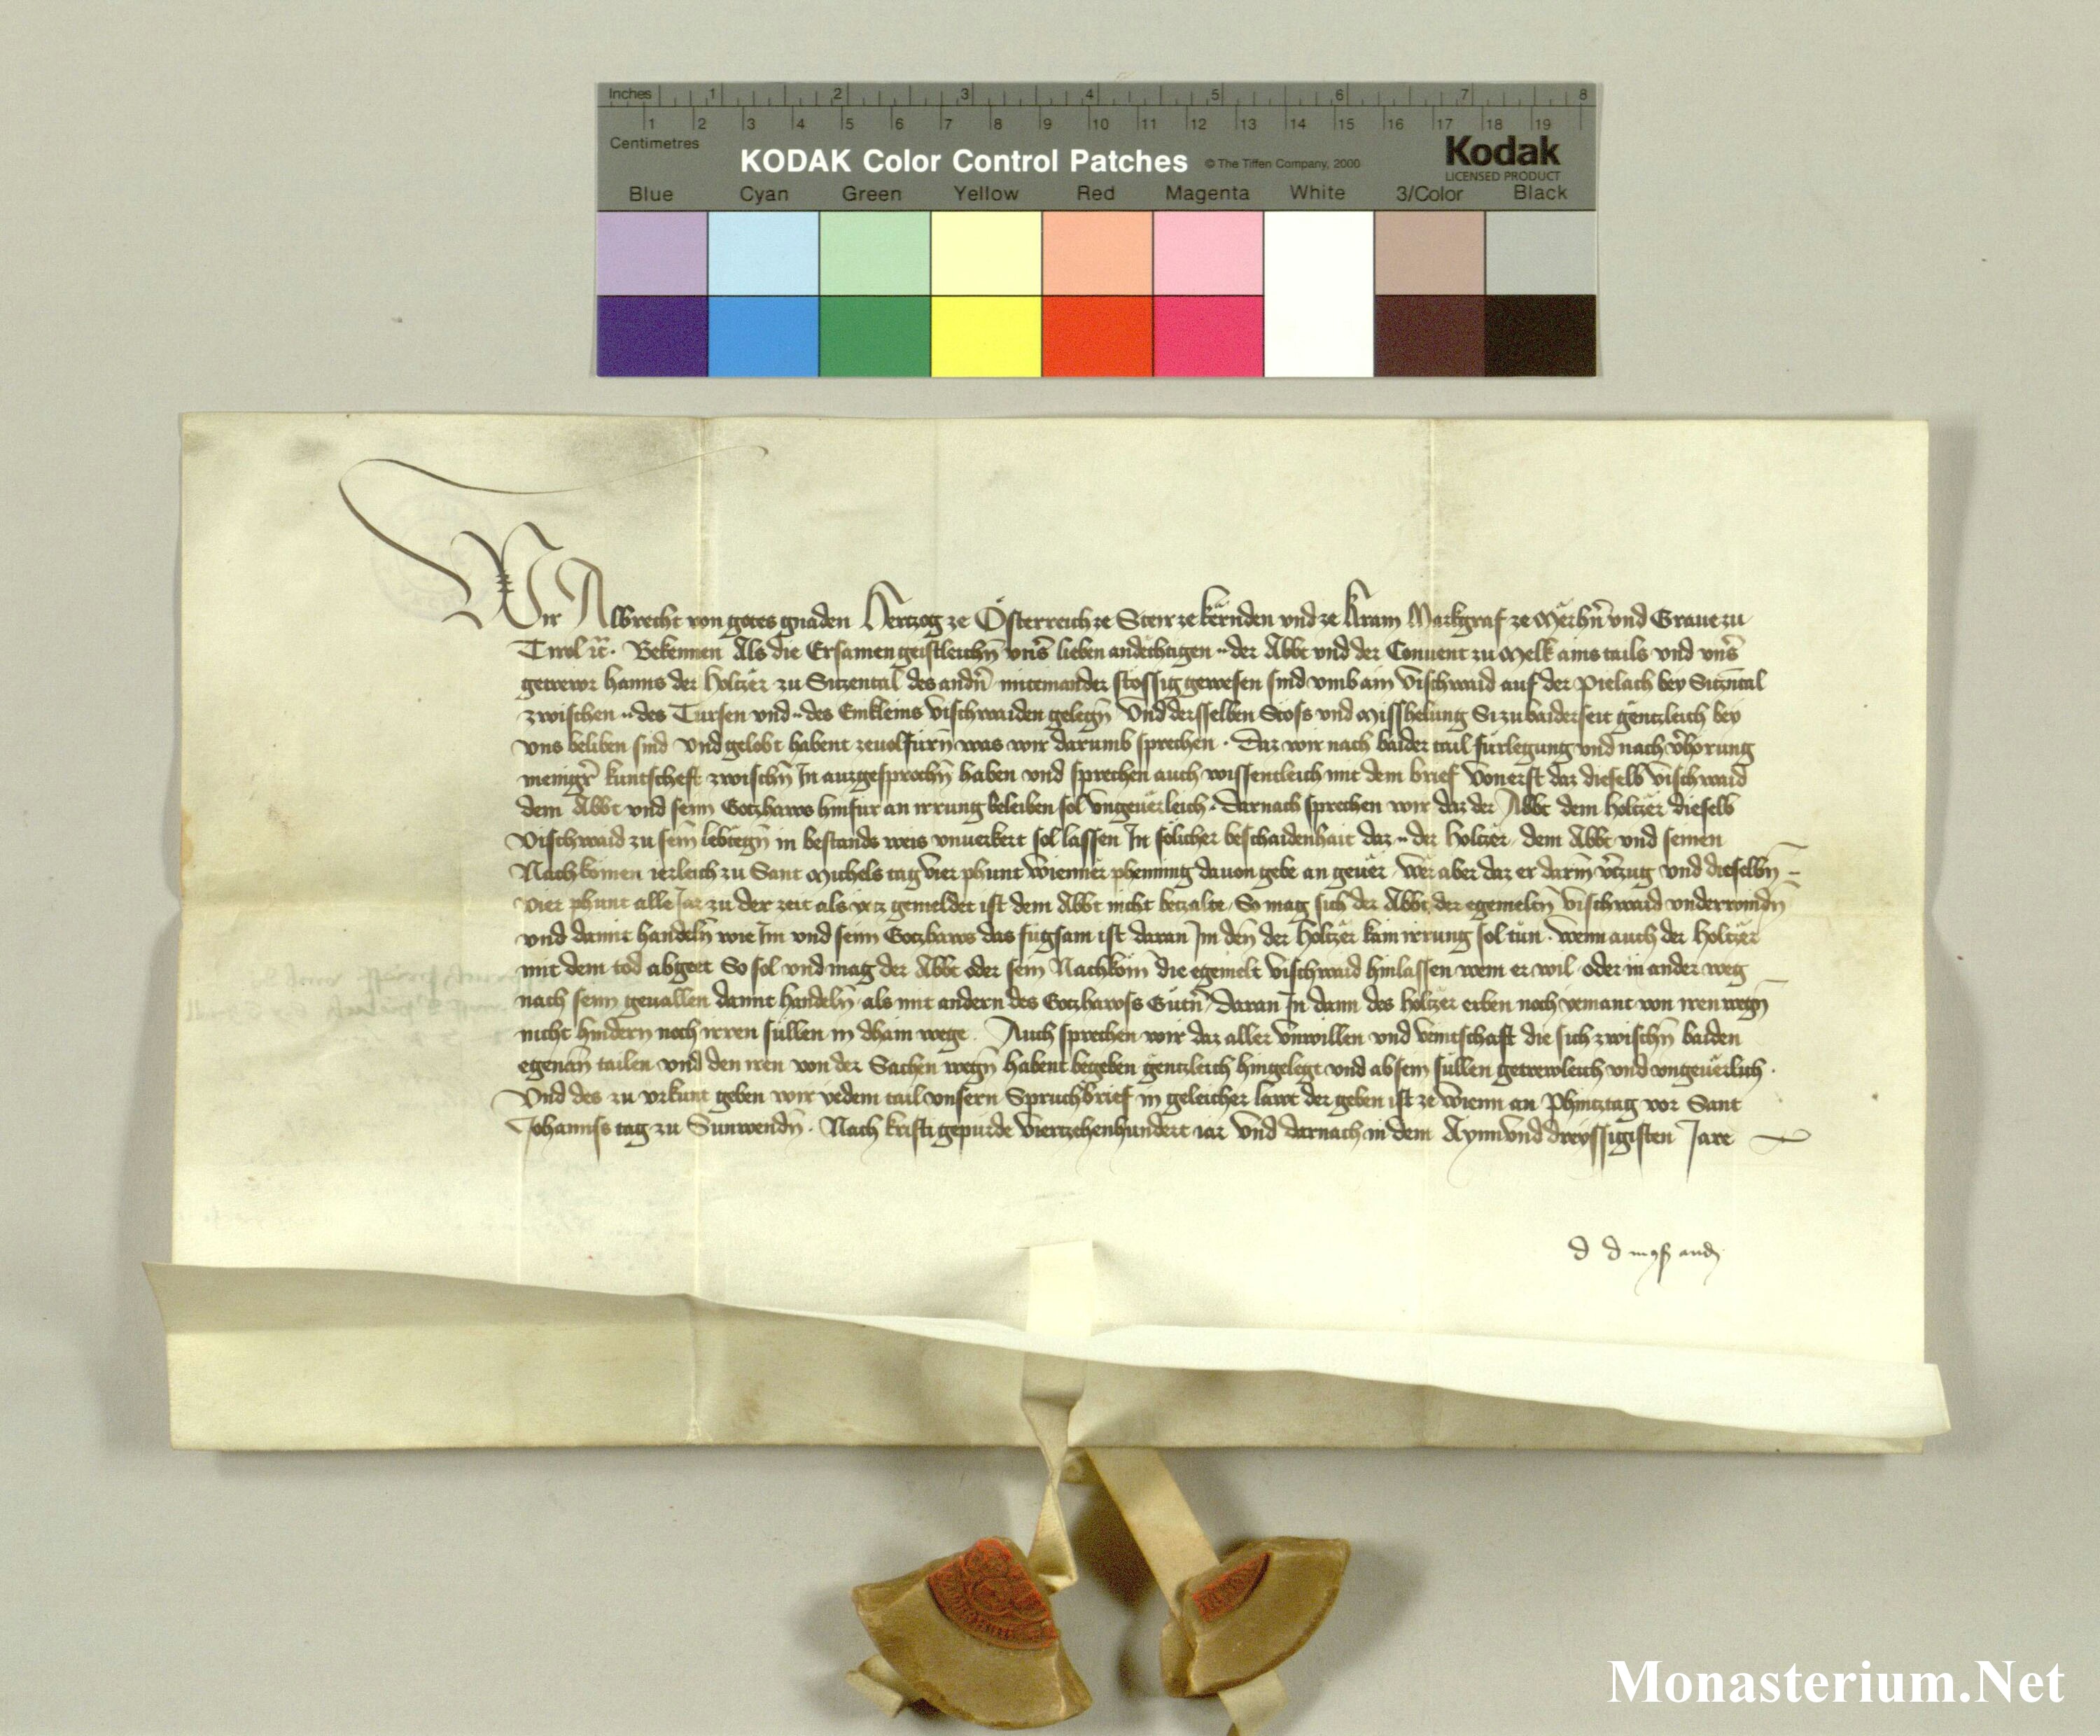 Inches 1 2 3 4 5 6 7 8
1 2 3 4 5 6 7 8 9 10 11 12 13 14 15 16 17 18 19
Centimetres
KODAK Color Control Patches © The Tiffen Company, 2000 Kodak
LICENSED PRODUCT
Blue Cyan Green Yellow Red Magenta White 3/Color Black
Wir Albrecht von gotes gnaden Hertzog ze Österreich ze Steir ze kërnden und ze Kram Markgraf ze Mërhñ und Graue zu
Tirol ꝛc̄. Bekennen Als die Ersamen geistleichñ vnsˢ lieben andechtigen .. der Abbt und der Conuent zu Melk ains tails und vnsˢ
getrewr hanns der holtzër zu Sitzental des andñ miteinander stössig gewesen sind vmb ain vischwaid auf der Pielach bey Sitzntal
zwischen .. des Tursen und .. des Emkleins vischwaiden gelegñ Und derselben Stoss und Misshelung Si zu baiderseit gëntzleich bey
vns beliben sind Und gelobt habent zeuolfürñ was wir darumb sprechen . Daz wir nach baider tail fürlegung und nach v̄hörung
menigr̄ kuntscheft zwischñ In auzgesprochñ haben und sprechen auch wissentleich mit dem brief Von erst daz dieselb vischwaid
dem Abbt und seim Gotzhaws hinfur an irrung beleiben sol vngeuërleich . Darnach sprechen wir daz der Abbt dem holtzër dieselb
Vischwaid zu seim lebtegñ in bestands weis vnuerkert sol lassen In sölicher beschaidenhait daz .. der holtzër dem Abbt und seinen
Nachkömen ierleich zu Sant Michels tag vier phunt wienner phenning dauon gebe an geuër Wër aber daz er darin v̄tzug und dieselbñ
vier phunt alle Jar zu der zeit als yetz gemeldet ist dem Abbt nicht betzalte So mag sich der Abbt der egemeltñ vischwaid vnderwindñ
und damit handelñ wie Im und seim Gotzhaws das fügsam ist daran Im deñ der holtzër kain irrung sol tün . Wenn auch der holtzër
mit dem tod abgeet So sol und mag der Abbt oder sein Nachköm̄ die egemelt vischwaid hinlassen wem er wil oder in ander weg
nach seim geuallen damit handelñ als mit andern des Gotzhawss Gütñ daran In dann des holtzër erben noch yemant von iren wegñ
nicht hindern noch irren süllen in dhain wege . Auch sprechen wir daz aller vnwillen und veintschaft die sich zwischñ baiden
egenañ tailen und den iren von der Sachen wegñ habent begeben gëntzleich hingelegt und ab sein süllen getrewleich und vngeuërlich .
Und des zu vrkunt geben wir yedem tail vnsern Spruchbrief in geleicher lawt der geben ist ze Wienn an Phintztag vor Sant
Johannss tag zu Sunwendñ . Nach kristi gepurde Viertzehenhundert iar Und darnach in dem Aynunddreyssigisten Jare
Monasterium.Net